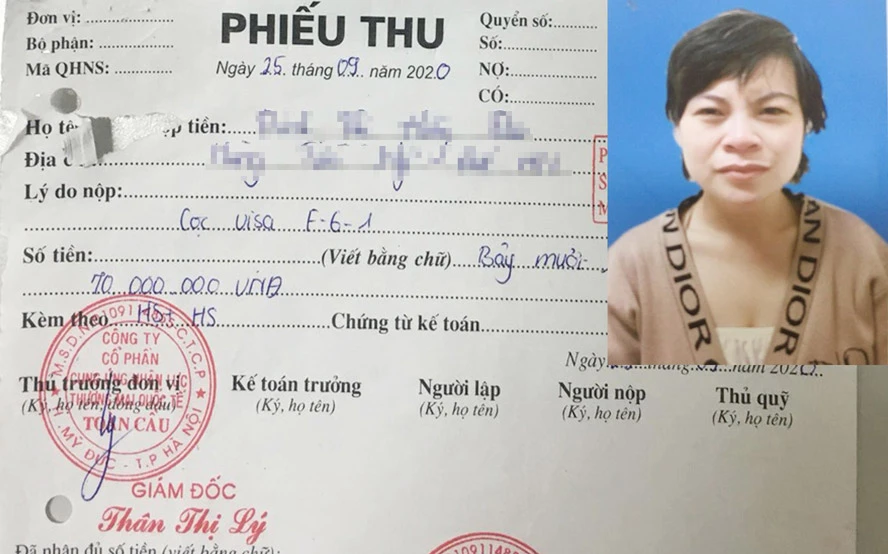 Đơn vị:
Bộ phận:
Mã QHNS:
PHIẾU THU
Ngày 25 tháng 09 năm 2020
Quyển số:
Số:
NỢ:
CÓ:
Họ tê
tiền:
Địa
Lý do nộp:
Cọc visa F-6-1
Số tiền: (Viết bằng chữ) Bảy mươi
70.000.000 VNĐ
Kèm theo HS
Chứng từ kế toán
Ngày tháng 09 năm 2020
Thủ trưởng đơn vị
(Ký, họ tên, đóng dấu)
Kế toán trưởng
(Ký, họ tên)
Người lập
(Ký, họ tên)
Người nộp
(Ký, họ tên)
Thủ quỹ
(Ký, họ tên)
CÔNG TY
CỔ PHẦN
CUNG ỨNG NHÂN LỰC
THƯƠNG MẠI QUỐC TẾ
TOÀN CẦU
H. MỸ ĐỨC - T.P HÀ NỘI
GIÁM ĐỐC
Thân Thị Lý
Đã nhận đủ số tiền (viết bằng chữ):
DIOR
AN DIOR